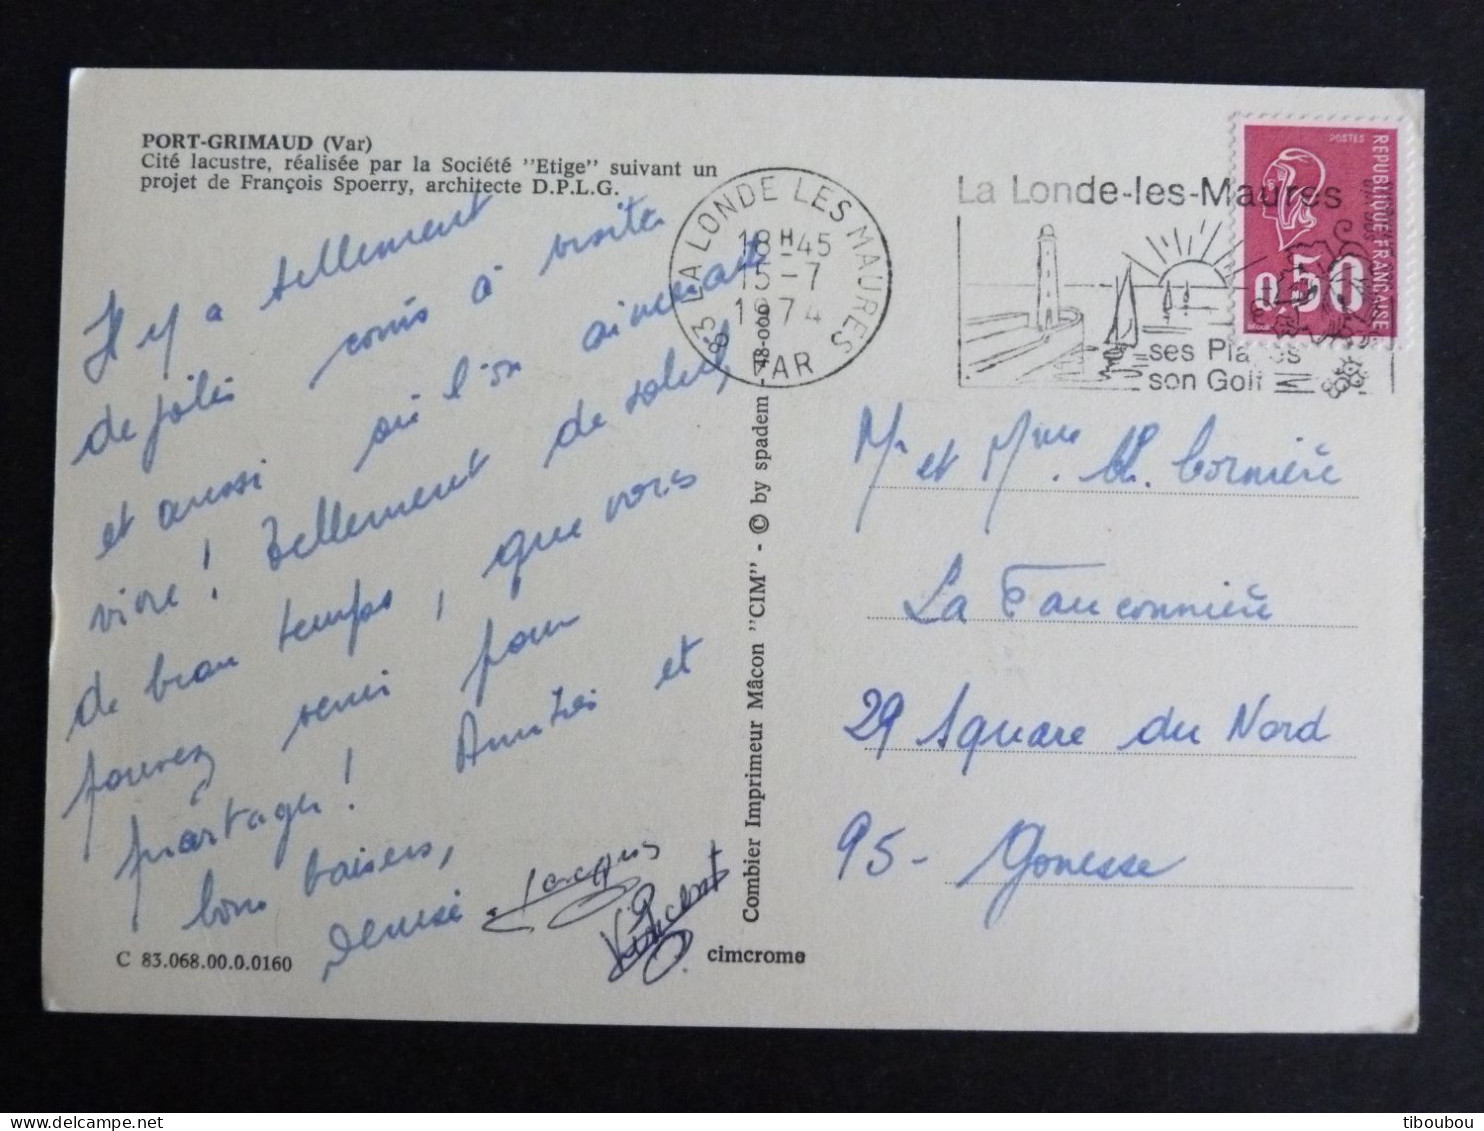 PORT-GRIMAUD (Var)
Cité lacustre, réalisée par la Société "Etige" suivant un
projet de François Spoerry, architecte D.P.L.G.
Il y a tellement
de jolis coins à visiter
et aussi où l'on aimerait
vivre! Tellement de soleil,
de beau temps, que vous
pouvez venir pour
partager! Amitiés et
bons baisers,
Denise Jacques
Vincent
C 83.068.00.0.0160
cimcrome
Combier Imprimeur Mâcon "CIM" - © by spadem - 48-000
83 LA LONDE LES MAURES
18H45
15-7
1974
VAR
La Londe-les-Maures
ses Plages
son Golf
POSTES
REPUBLIQUE FRANÇAISE
0,50
Mr et Mme Ch. Cornière
La Fauconnière
29 Square du Nord
95- Gonesse
tiboubou